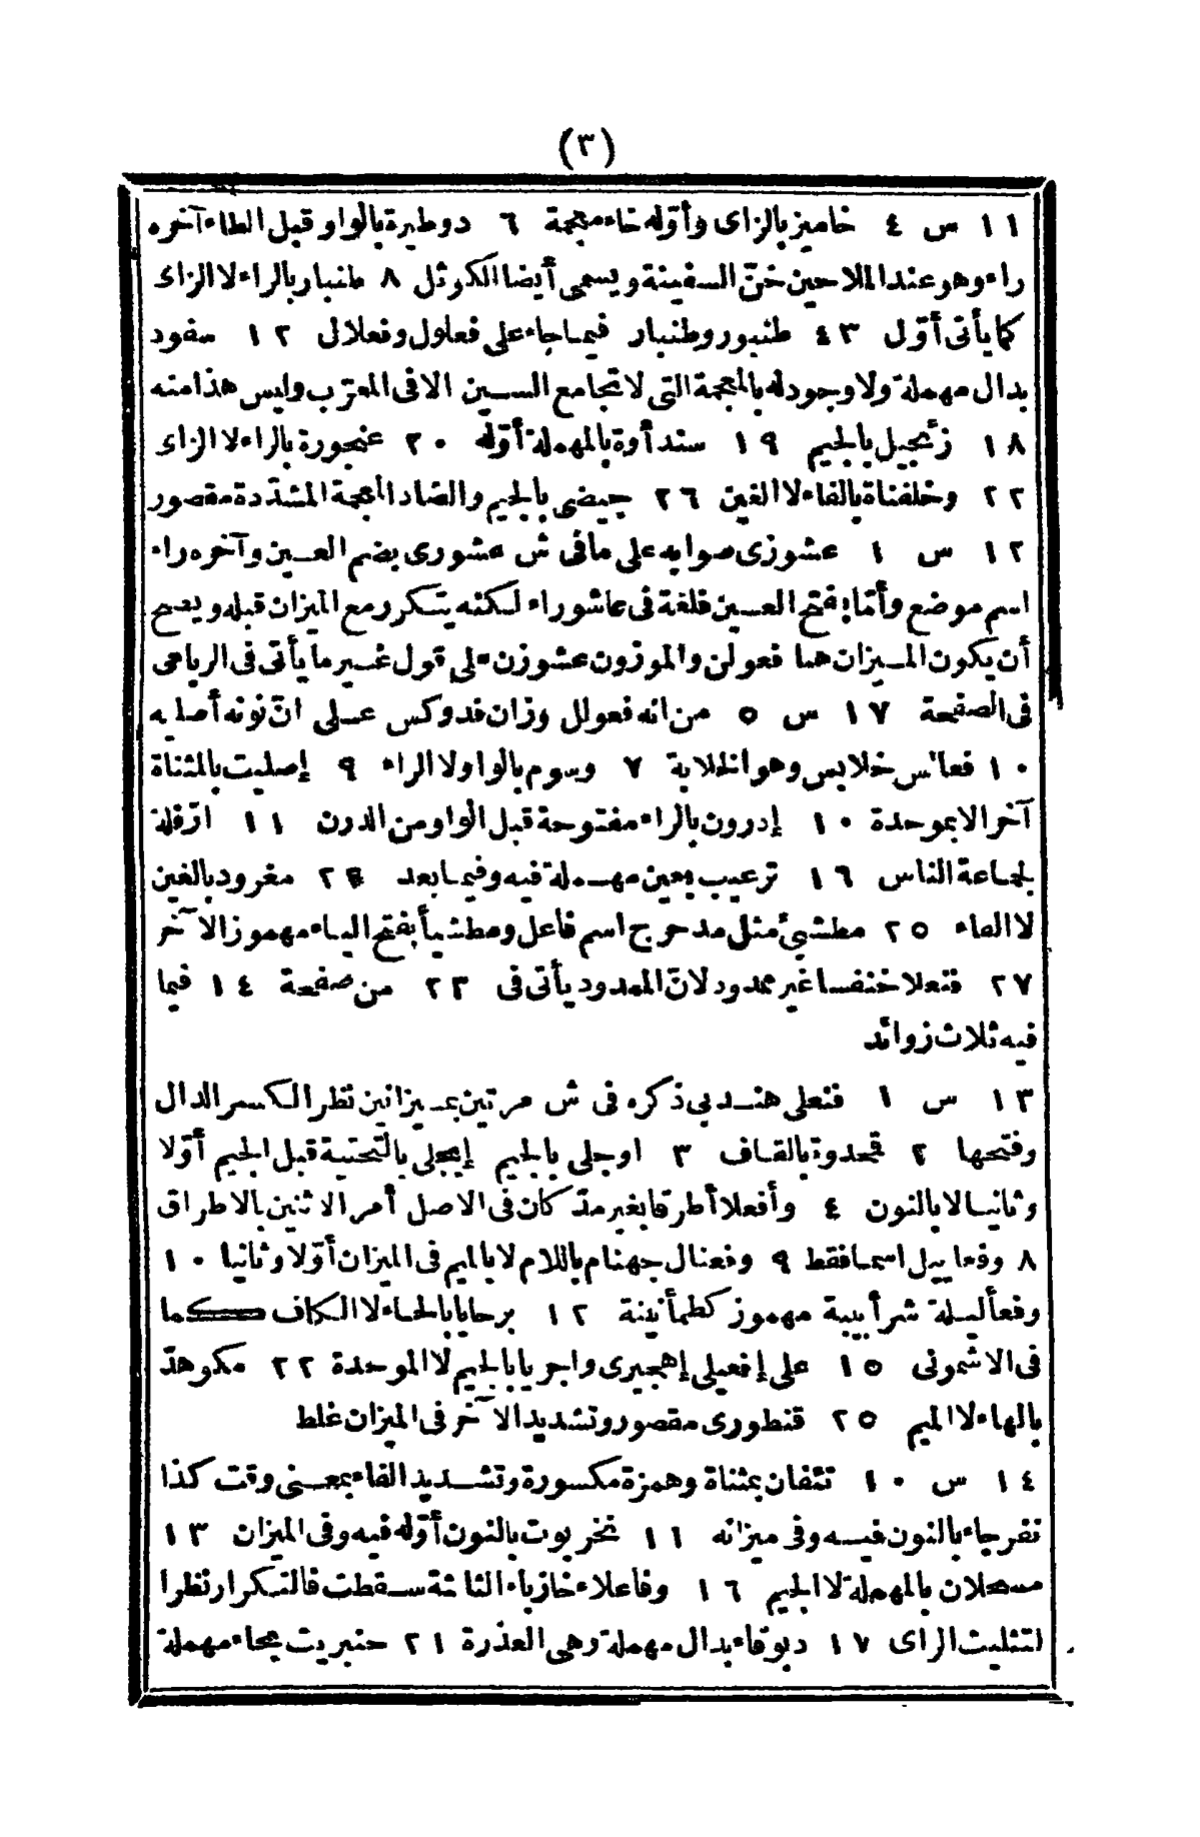 (٣)
١١ س ٤ خاميز بالزاى وأوّله خاء معجمة ٦ دوطيرة بالواو قبل الطاء آخره
راء وهو عند الملاحين خنّ السفينة ويسمى أيضا الكوثل ٨ طنبار بالراء لا الزاى
كما يأتى أوّل ٤٣ طنبور وطنبار فيما جاء على فعلول وفعلال ١٢ سفود
بدال مهملة ولا وجود له بالمعجمة التى لا تجامع السين الا فى المعرّب وليس هذا منه
١٨ زئجيل بالجيم ١٩ سندأوة بالمهملة أوّله ٢٠ عنجورة بالراء لا الزاى
٢٢ وخلفناة بالفاء لا الغين ٢٦ جيضى بالجيم والضاد المعجمة المشدّدة مقصور
١٢ س ١ عشوزى صوابه على ما فى ش عشورى بضم العين وآخره راء
اسم موضع وأمّا بفتح العين فلغة فى عاشوراء لكنه يتكرر مع الميزان قبله ويصح
أن يكون الميزان هما فعولن والموزون عشوزن على قول غير ما يأتى فى الرباعى
فى الصفحة ١٧ س ٥ من انه فعولل وزان فدوكس على انّ نونه أصلية
١٠ فعالس خلابس وهو الخلابة ٧ وسوم بالواو لا الراء ٩ إصليت بالمثناة
آخر الا بموحدة ١٠ إدرون بالراء مفتوحة قبل الواو من الدرن ١١ ازفلة
لجماعة الناس ١٦ ترعيب بعين مهملة فيه وفيما بعد ٢٤ مغرود بالغين
لا الفاء ٢٥ مطشيئ مثل مدحرج اسم فاعل ومطشيأ بفتح الياء مهموز الآخر
٢٧ فنعلا خنفسا غير ممدود لانّ الممدود يأتى فى ٢٣ من صفحة ١٤ فيما
فيه ثلاث زوائد
١٣ س ١ فنعلى هندبى ذكره فى ش مرتين بميزانين نظر الكسر الدال
وفتحها ٢ قمحدوة بالقاف ٣ اوجلى بالجيم إيجلى بالتحتية قبل الجيم أوّلا
وثانيا لا بالنون ٤ وأفعلا أطرقا بغير مدّ كان فى الاصل أمر الاثنين بالاطراق
٨ وفعاييل اسما فقط ٩ وفعنال جهنام باللام لا بالميم فى الميزان أوّلا وثانيا ١٠
وفعأليلة شرأبيبة مهموز كطمأنينة ١٢ برحايا بالحاء لا الكاف كما
فى الاشمونى ١٥ على إفعيلى إهجيرى واجريا بالجيم لا الموحدة ٢٢ مكوهدّ
بالهاء لا الميم ٢٥ قنطورى مقصور وتشديد الآخر فى الميزان غلط
١٤ س ١٠ تئفان بمثناة وهمزة مكسورة وتشديد الفاء بمعنى وقت كذا
تفرجاء بالنون فيه وفى ميزانه ١١ نخربوت بالنون أوّله فيه وفى الميزان ١٣
مسحلان بالمهملة لا الجيم ١٦ وفاعلاء خازباء الثالثة سقطت فالتكرار نظرا
لتثليث الزاى ١٧ دبوقاء بدال مهملة وهى العذرة ٢١ حنبريت بحاء مهملة